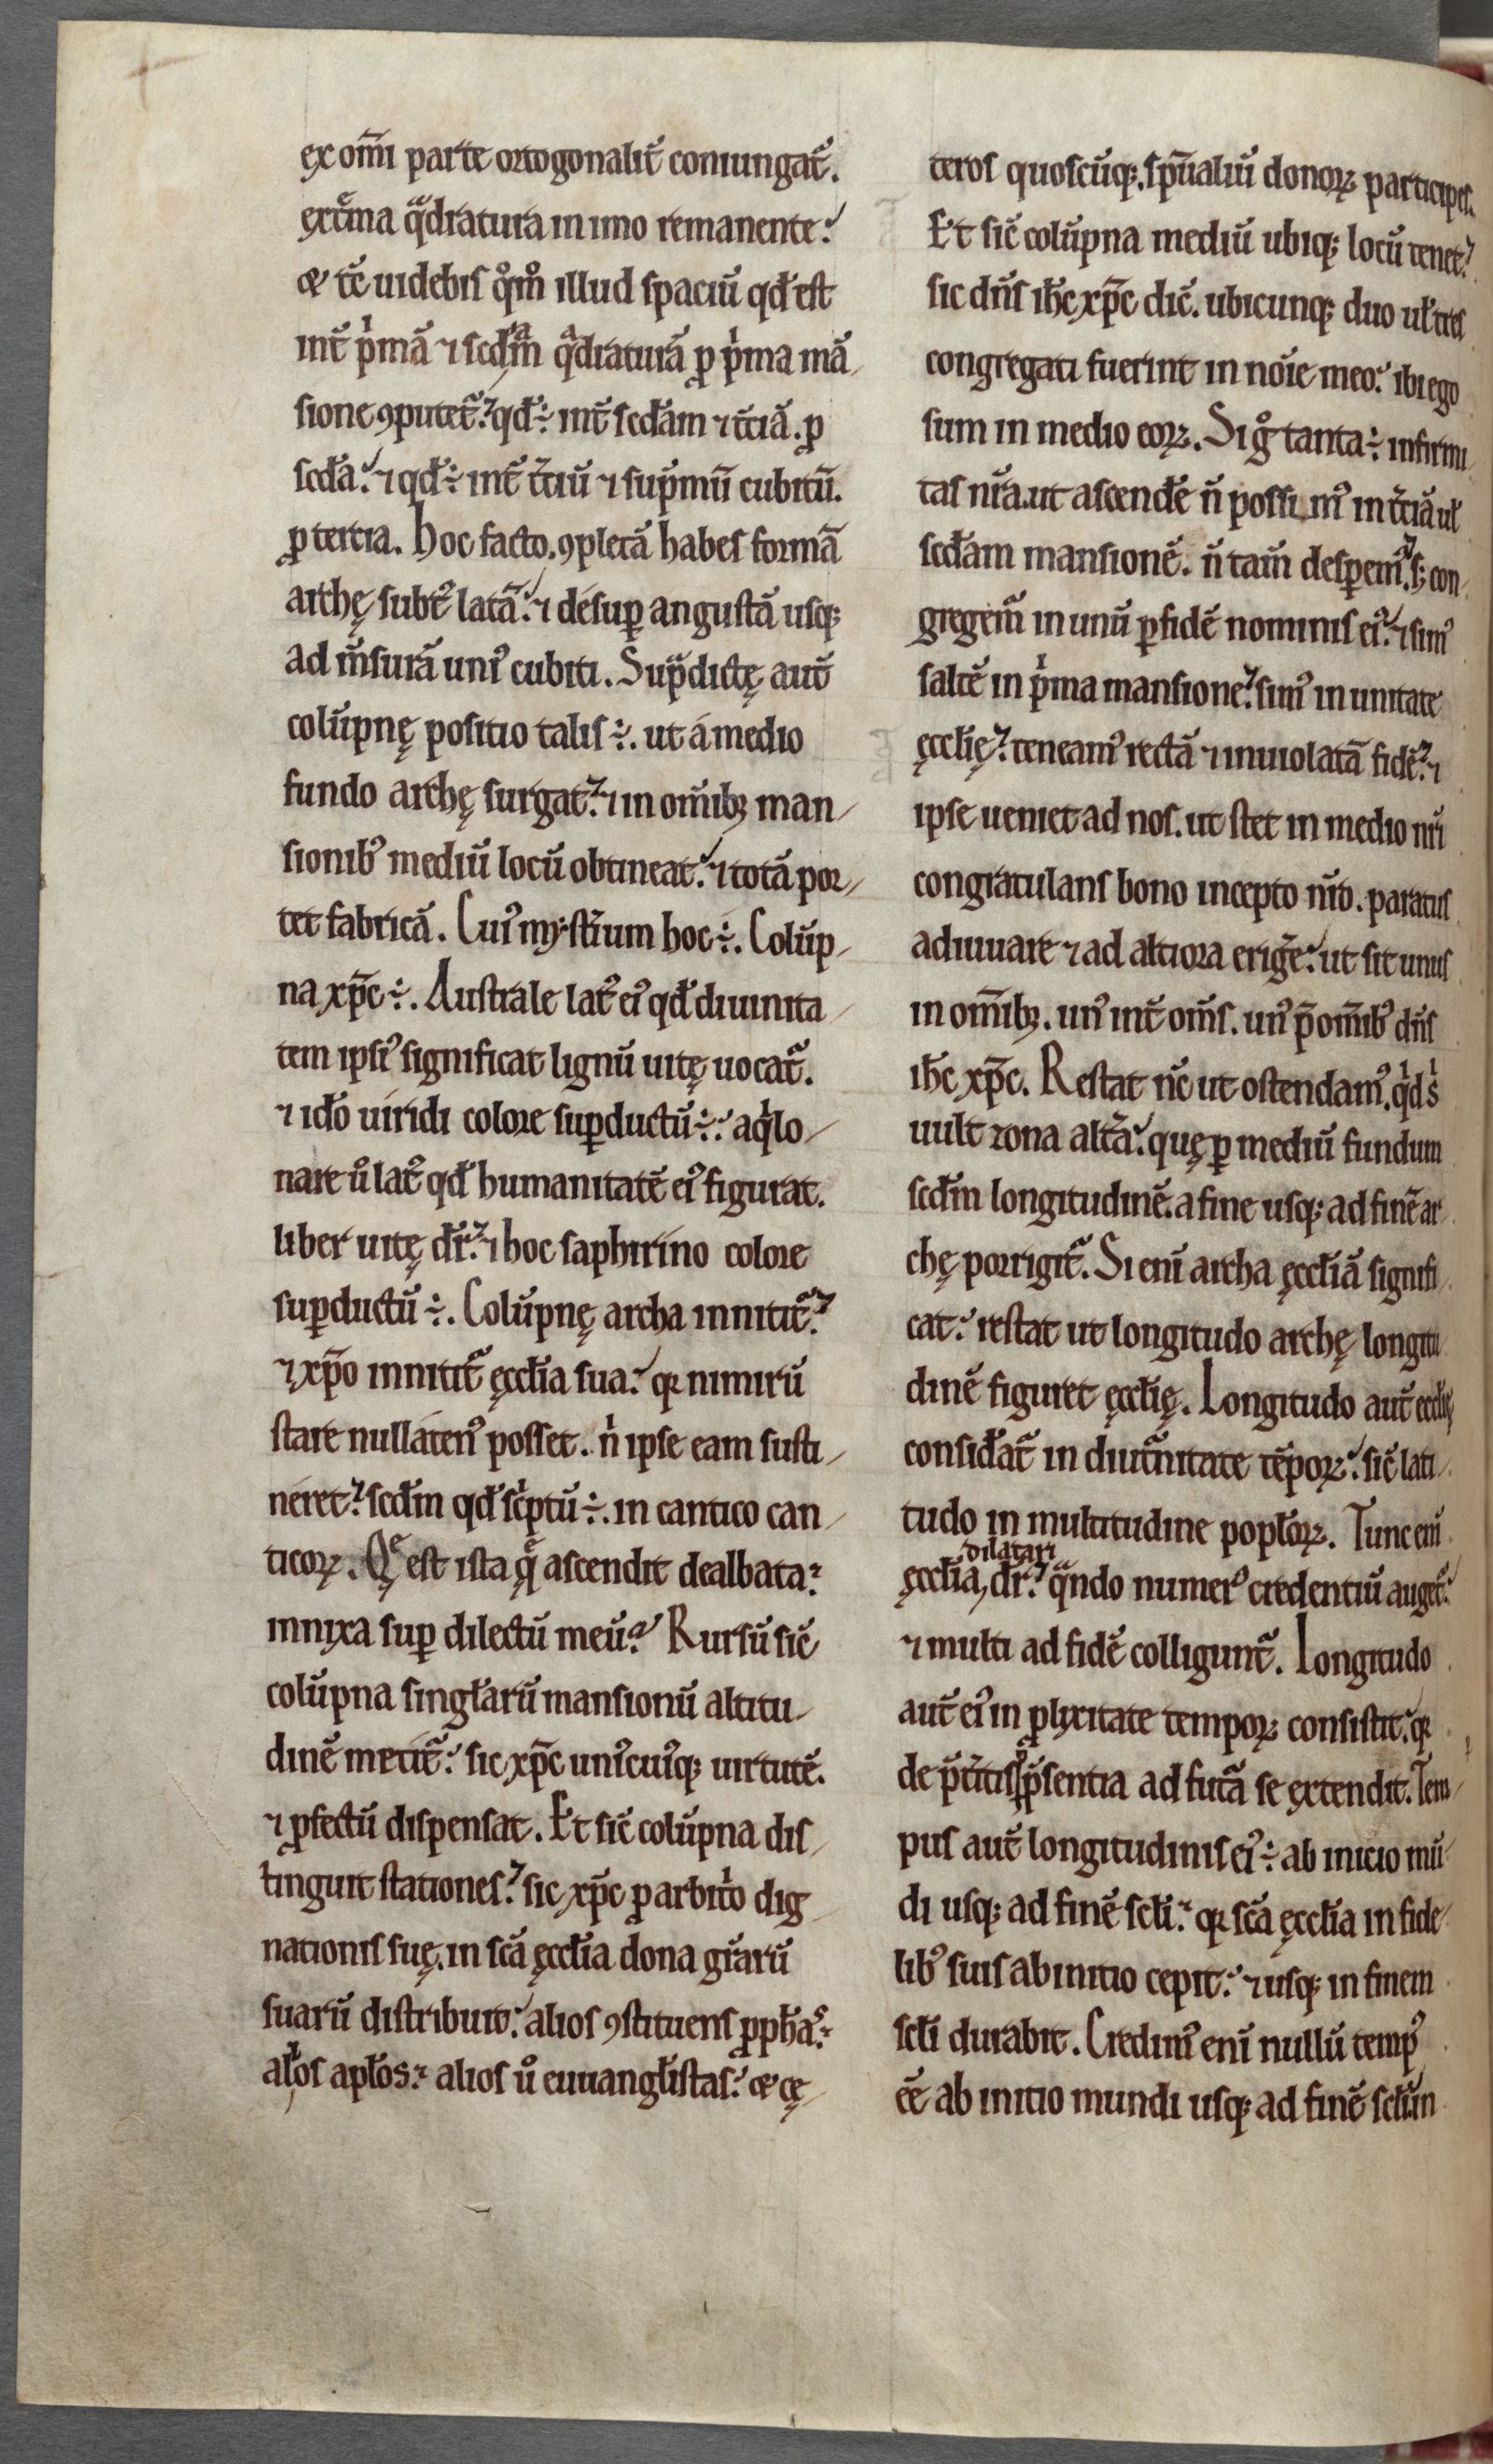 ex om̄i parte ortogonalit̄ coniungat᷑.
ext͛ma qͣdratura in imo remanente.
⁊ tc̄ uidebis qͦmͦ illud spaciū qd̛ est
int̄ pͥmā ⁊ scd̄ͣm qͣdraturā p̲ pͥma mā
sione ꝯputet᷑. qd̛ ÷ int̄ scd̄am ⁊ t̄ciā. p̲
scd̄a. ⁊ qd̛ ÷ int̄ t̄ciū ⁊ sup̄mū cubitū.
p̲ tertia. Hoc facto. ꝯpletā habes formā
archę subt᷒ latā. ⁊ desup̲ angustā usq;
ad m̄surā uni᷒ cubiti. Sup̄dictę aut̄
colūpnę positio talis ÷. ut a medio
fundo archę surgat. ⁊ in om̄ibꝫ man
sionib᷒ mediū locū obtineat. ⁊ totā por
tet fabricā. Cui᷒ myst̄ium hoc ÷. Colūp
na xp̄c ÷. Australe lat᷒ ei᷒ qd̛ diuinita
tem ipsi᷒ significat lignū uitę uocat᷑.
⁊ idō uiridi colore sup̲ductū ÷. aqͥlo
nare uͦ lat᷒ qd̛ humanitatē ei᷒ figurat.
liber uitę dr̄. ⁊ hoc saphirino colore
sup̲ductū ÷. Colūpnę archa innitit᷑.
⁊ xp̄o innitit᷑ ęccl̄ia sua. qꝛ nimirū
stare nullaten᷒ posset. nͥ ipse eam susti
neret. scd̄m qd̛ sc̄ptū ÷. in cantico can
ticoꝝ. Qę est ista qę ascendit dealbata.
innixa sup̲ dilectū meū. Rursū sic̄
colūpna singl̄arū mansionū altitu
dinē metit᷑. sic xp̄c uni᷒cui᷒q; uirtutē.
⁊ ꝓfectū dispensat. Et sic̄ colūpna dis
tinguit stationes. sic xp̄c ꝓ arbitͥo dig
nationis suę. in sc̄a ęccl̄ia dona gr̄arū
suarū distribuit. alios ꝯstituens ꝓph̄as.
al̄os apl̄os. alios uͦ euuangl̄istas. ⁊ cę
teros quoscūq;. sp̄ualiū donoꝝ participes.
Et sic̄ colūpna mediū ubiq; locū tenet.
sic dn̄s ih̄c xp̄c dic̄. ubicunq; duo ul̄ tres
congregati fuerint in noīe meo. ibi ego
sum in medio eoꝝ. Si gͦ tanta ÷ infirmi
tas nr̄a. ut ascendē n̄ possim᷒ in t̄ciā ul̄
scd̄am mansionē. n̄ tam̄ desp̲em᷒. sꝫ con
gregem᷑ in unū p̲ fidē nominis ei᷒. ⁊ sim᷒
saltē in pͥma mansione. sim᷒ in unitate
ęccl̄ię. teneam᷒ rectā ⁊ inuiolatā fidē. ⁊
ipse ueniet ad nos. ut stet in medio nr̄i
congratulans bono incepto nr̄o. paratus
adiuuare ⁊ ad altiora eriḡe. ut sit unus
in om̄ibꝫ. un᷒ int̄ om̄s. un᷒ p̄ om̄ib᷒ dn̄s
ih̄c xp̄c. Restat nc̄ ut ostendam᷒. qͥd sͥ
uult zona alt̄a. quę p̲ mediū fundum
scd̄m longitudinē. a fine usq; ad finē ar
chę porrigit᷑. Si eni̅ archa ęccl̄iā signifi
cat. restat ut longitudo archę longitu
dinē figuret ęccl̄ię. Longitudo aut̄ eccl̄ię
considāt᷑ in diut᷑nitate tēpoꝝ. sic̄ lati
tudo in multitudine popl̄oꝝ. Tunc eni̅
ęccl̄ia, dilatari dr̄. qͣndo numer᷒ credentiū auget᷑.
⁊ multi ad fidē colligunt᷑. Longitudo
aut̄ ei᷒ in ꝓlyxitate tempoꝝ consistit. qꝛ
de p̄t̄itis p̲ p̄sentia ad fut᷑a se extendit. Tem
pus aut̄ longitudinis ei᷒ ÷ ab inicio mū
di usq; ad finē scl̄i. qꝛ sc̄a ęccl̄ia in fide
lib᷒ suis ab initio cepit. ⁊ usq; in finem
scl̄i durabit. Credim᷒ eni̅ nullū temp᷒
eē ab initio mundi usq; ad finē scl̄i. in